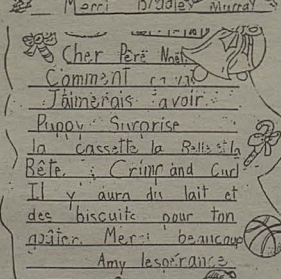 Merci Bradley Murray
Cher Père Noël
Comment ça va
J'aimerais avoir
Puppy Surprise
la cassette la Belle et la
Bête. Crimp and Curl
Il y aura du lait et
des biscuits pour ton
goûter. Merci beaucoup
Amy lesperance